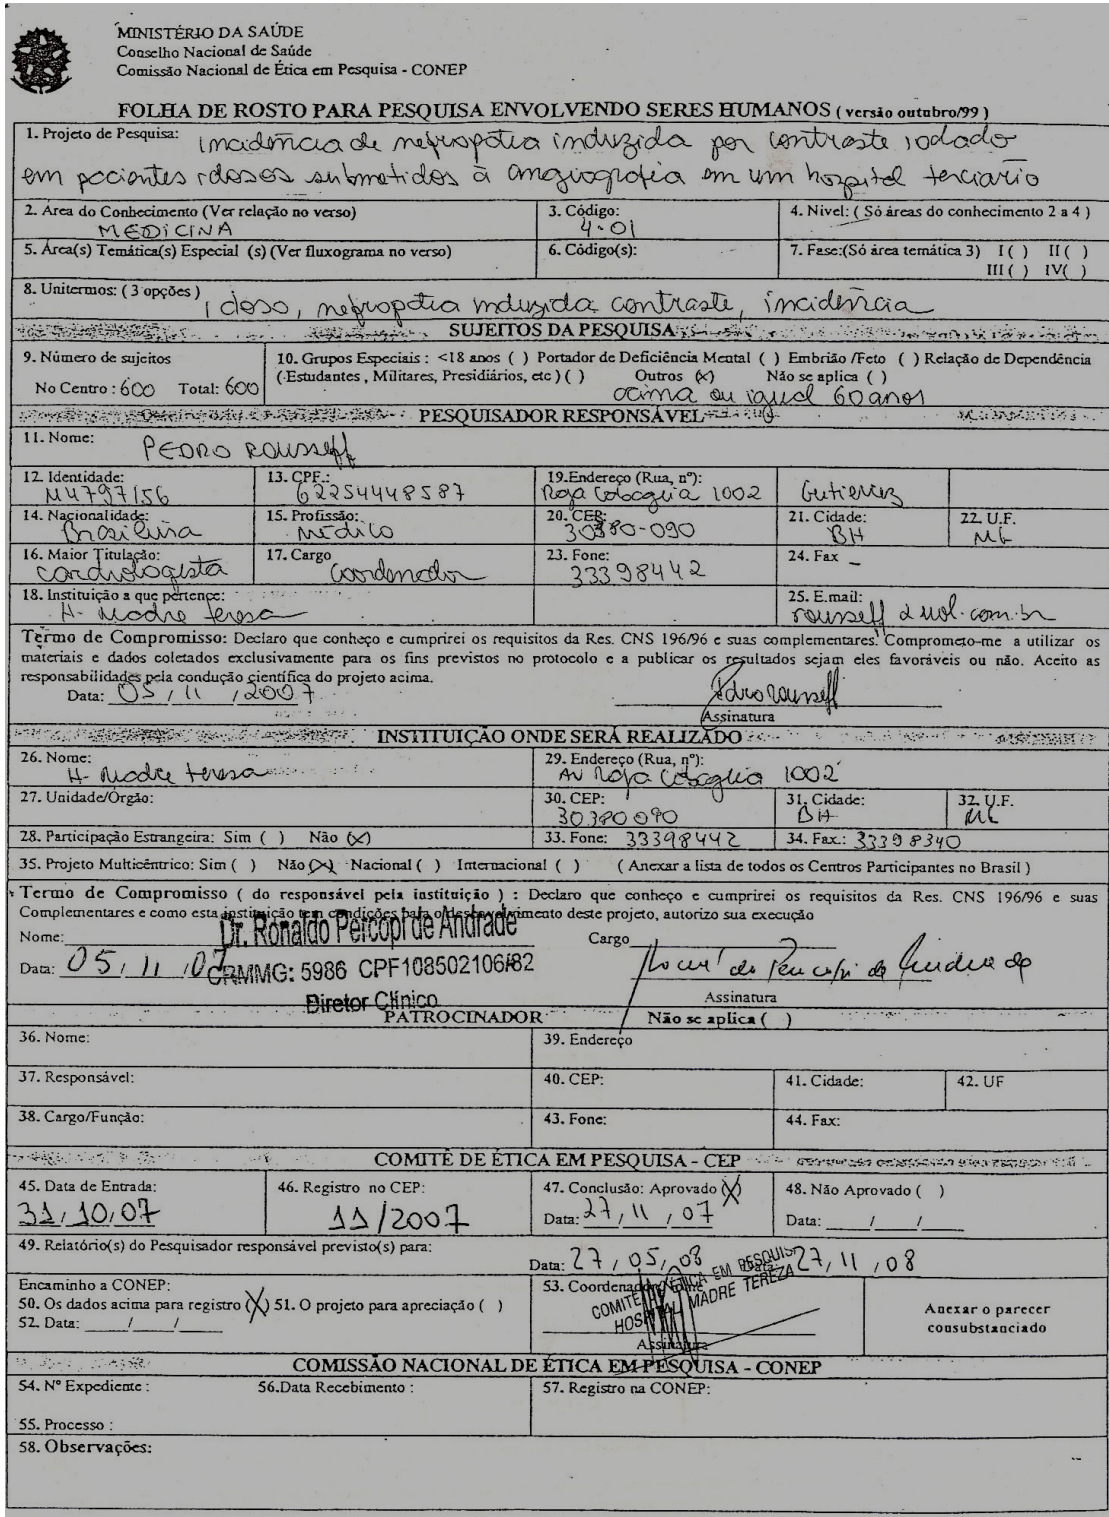 MINISTÉRIO DA SAÚDE
Conselho Nacional de Saúde
Comissão Nacional de Ética em Pesquisa - CONEP
FOLHA DE ROSTO PARA PESQUISA ENVOLVENDO SERES HUMANOS ( versão outubro/99 )
1. Projeto de Pesquisa: Incidência de nefropatia induzida por contraste iodado
em pacientes idosos submetidos à angiografia em um hospital terciario
2. Área do Conhecimento (Ver relação no verso) MEDICINA 3. Código: 4.01 4. Nível: ( Só áreas do conhecimento 2 a 4 )
5. Área(s) Temática(s) Especial (s) (Ver fluxograma no verso) 6. Código(s): 7. Fase:(Só área temática 3) I ( ) II ( )
III ( ) IV( )
8. Unitermos: ( 3 opções ) idoso, nefropatia induzida contraste, incidência
SUJEITOS DA PESQUISA
9. Número de sujeitos 10. Grupos Especiais : <18 anos ( ) Portador de Deficiência Mental ( ) Embrião /Feto ( ) Relação de Dependência
No Centro : 600 Total: 600 (Estudantes , Militares, Presidiários, etc ) ( ) Outros (x) Não se aplica ( )
acima ou igual 60 anos
PESQUISADOR RESPONSÁVEL
11. Nome: PEDRO ROUSSEFF
12. Identidade: M4797156 13. CPF.: 62254448587 19.Endereço (Rua, nº): Raja Gabaglia 1002 Gutierrez
14. Nacionalidade: Brasileira 15. Profissão: Médico 20. CEP: 30380-090 21. Cidade: BH 22. U.F. MG
16. Maior Titulação: cardiologista 17. Cargo coordenador 23. Fone: 33398442 24. Fax -
18. Instituição a que pertence: H. Madre Teresa 25. E.mail: rousseff@uol.com.br
Termo de Compromisso: Declaro que conheço e cumprirei os requisitos da Res. CNS 196/96 e suas complementares. Comprometo-me a utilizar os
materiais e dados coletados exclusivamente para os fins previstos no protocolo e a publicar os resultados sejam eles favoráveis ou não. Aceito as
responsabilidades pela condução científica do projeto acima.
Data: 05 / 11 / 2007 Pedro Rousseff
Assinatura
INSTITUIÇÃO ONDE SERÁ REALIZADO
26. Nome: H. Madre Teresa 29. Endereço (Rua, nº): Av Raja Gabaglia 1002
27. Unidade/Órgão: 30. CEP: 30380090 31. Cidade: BH 32. U.F. MG
28. Participação Estrangeira: Sim ( ) Não (x) 33. Fone: 33398442 34. Fax.: 33398340
35. Projeto Multicêntrico: Sim ( ) Não (x) Nacional ( ) Internacional ( ) ( Anexar a lista de todos os Centros Participantes no Brasil )
Termo de Compromisso ( do responsável pela instituição ) : Declaro que conheço e cumprirei os requisitos da Res. CNS 196/96 e suas
Complementares e como esta instituição tem condições para o desenvolvimento deste projeto, autorizo sua execução
Nome: Dr. Ronaldo Percopi de Andrade Cargo
Data: 05 / 11 / 07 CRMMG: 5986 CPF108502106/82
Diretor Clínico Assinatura
PATROCINADOR Não se aplica ( )
36. Nome: 39. Endereço
37. Responsável: 40. CEP: 41. Cidade: 42. UF
38. Cargo/Função: 43. Fone: 44. Fax:
COMITÊ DE ÉTICA EM PESQUISA - CEP
45. Data de Entrada: 46. Registro no CEP: 47. Conclusão: Aprovado (X) 48. Não Aprovado ( )
31/10/07 11/2007 Data: 27 / 11 / 07 Data: ___/___/___
49. Relatório(s) do Pesquisador responsável previsto(s) para:
Data: 27 / 05 / 08 Data: 27 / 11 / 08
Encaminho a CONEP:
50. Os dados acima para registro (X) 51. O projeto para apreciação ( )
52. Data: ___/___/___
53. Coordenador
COMITÊ ÉTICA EM PESQUIS
HOSPITAL MADRE TEREZA
Assinatura
Anexar o parecer
consubstanciado
COMISSÃO NACIONAL DE ÉTICA EM PESQUISA - CONEP
54. Nº Expediente : 56.Data Recebimento : 57. Registro na CONEP:
55. Processo :
58. Observações: